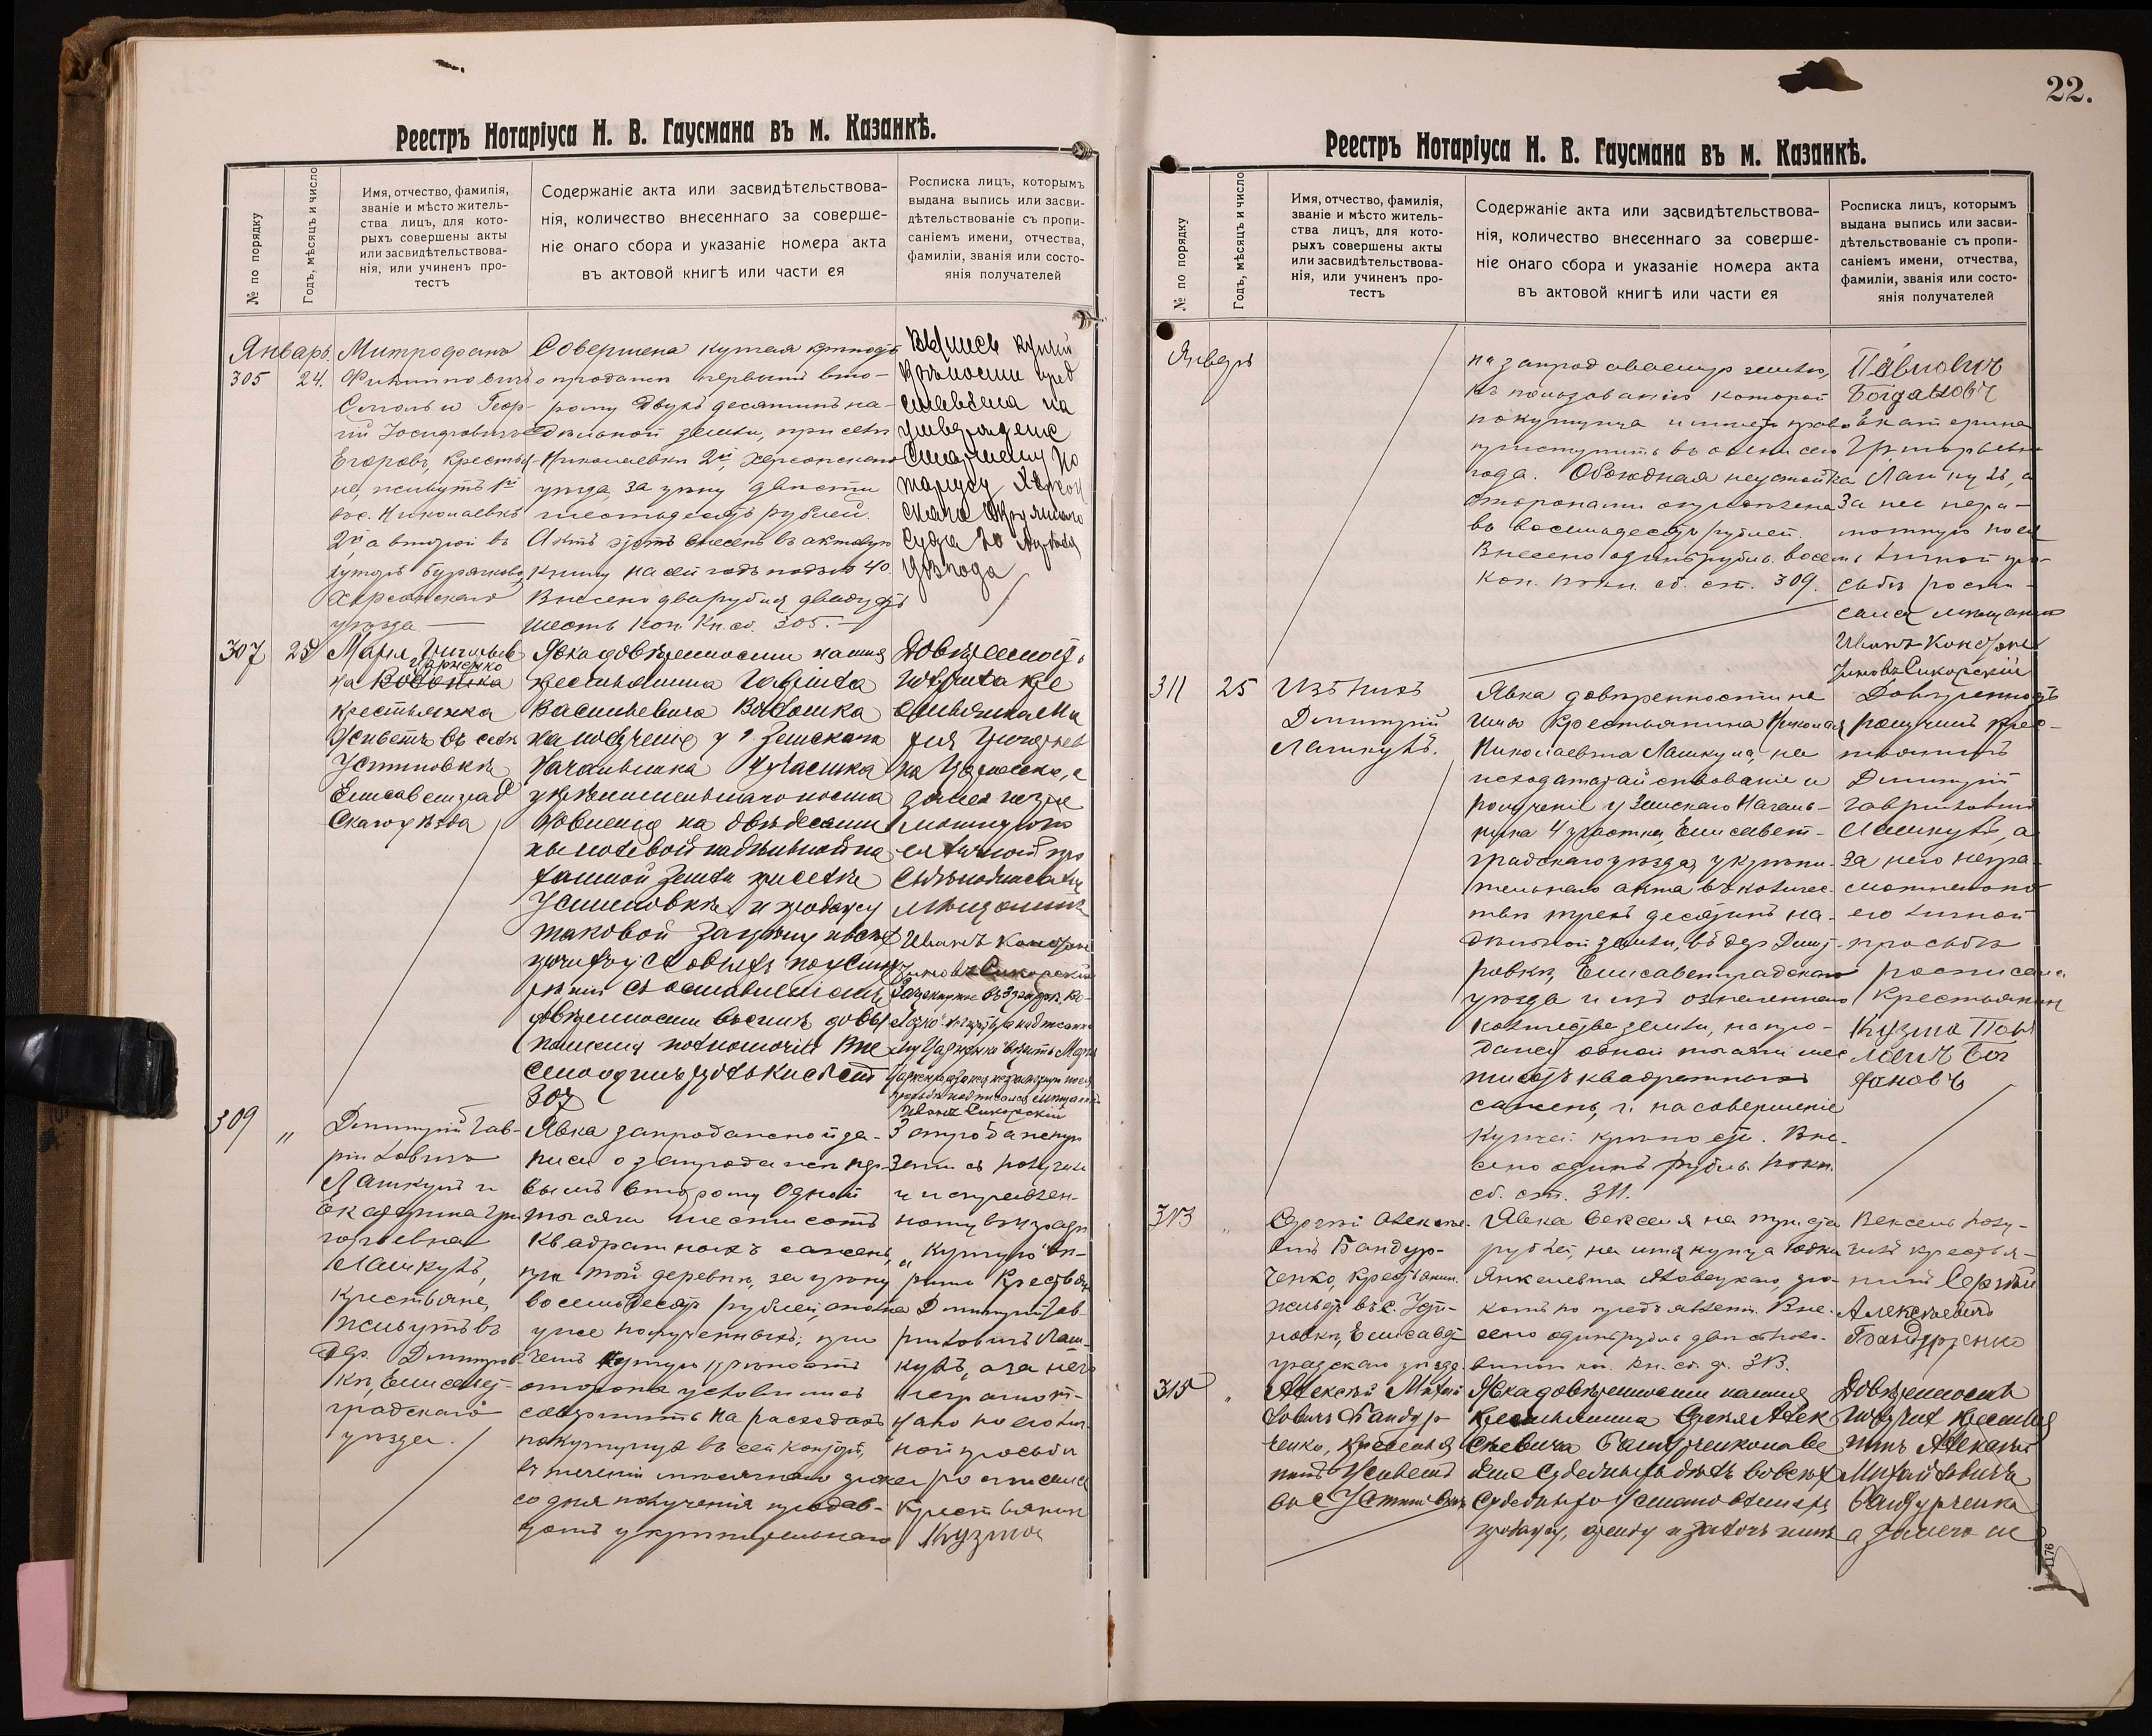 Реестръ Нотаріуса Н. В. Гаусмана въ м. Казанкѣ.
№ по порядку
Годъ, мѣсяцъ и число
Имя, отчество, фамилія,
званіе и мѣсто житель-
ства лицъ, для кото-
рыхъ совершены акты
или засвидѣтельствова-
нія, или учиненъ про-
тестъ
Содержаніе акта или засвидѣтельствова-
нія, количество внесеннаго за соверше-
ніе онаго сбора и указаніе номера акта
въ актовой книгѣ или части ея
Росписка лицъ, которымъ
выдана выпись или засви-
дѣтельствованіе съ пропи-
саніемъ имени, отчества,
фамиліи, званія или состо-
янія получателей
Январь.
305
24.
Митрофанъ
Филипповичъ
и Геор-
гій Іосифовичъ
Егоровъ, крестья-
не, живутъ 1й
въ с. Николаевкѣ
2й, а второй въ
хуторѣ
Херсонскаго
уѣзда
Совершена купчая крѣпость
о продажѣ первымъ вто-
рому двухъ десятинъ на-
дѣльной земли, при селѣ
Николаевки 2й, Херсонскаго
уѣзда, за цѣну двѣсти
шестьдесятъ рублей.
Актъ этотъ внесенъ въ актовую
книгу на сей годъ подъ № 40.
Внесено два рубля двадцать
шесть коп. Кн. сб. 305.
Выпись купчей
крѣпости пред
ставлена на
утвержденіе
Старшему Но
таріусу Херсон
скаго Окружнаго
Суда 20 Апрѣля
года
307
25
Марія Григорьев
на Водошка
Царженко
крестьянка
живетъ въ селѣ
Устиновкѣ
Елисаветград
скаго уѣзда
Явка довѣренности на имя
крестьянина Гавріила
Васильевича Водошка
на полученіе у Земскаго
Начальника участка
укрѣпительнаго акта
на двѣ десяти
ны полевой надѣльной па
хатной земли при селѣ
Устиновкѣ и продажу
таковой за цѣну и въ
съ составленіемъ
довѣренности
полномочій Вне
сено одинъ рубль Кн сб ст
307
Довѣренность
получила кре
стьянка Ма
рія Григорьев
на Царженко, а
за нея негра
мотную по
ея личной про
сьбѣ подписался
мѣщанинъ
Иванъ Констан
тиновъ Сикорскій
Иванъ Сикорскій
309
"
Димитрій Гав-
риловичъ
Лашкулъ и
Екатерина Гри
горьевна
Лашкулъ,
крестьяне,
живутъ въ
дер. Димитров-
кѣ, Елисавет-
градскаго
уѣзда.
Явка запродажной за-
писи о запродажѣ пер-
вымъ второму одной
тысячи шестисотъ
квадратныхъ саженъ,
при той деревнѣ, за цѣну
восемьдесятъ рублей, сполна
уже полученныхъ; при
чемъ купчую крѣпость
стороны условились
совершить на расходахъ
покупщицы въ сей конторѣ,
въ теченіи мѣсячнаго срока
со дня полученія продав-
цомъ укрѣпительнаго
Запродажную
запись получилъ
и исправлен-
ному въ ней
"купчую" вѣ-
рить Крестьян
Димитрій Гав-
риловичъ Лаш-
кулъ, а за него
неграмот-
наго по его лич-
ной просьбѣ
росписался
крестьянин
Кузьма
22.
Реестръ Нотаріуса Н. В. Гаусмана въ м. Казанкѣ.
№ по порядку
Годъ, мѣсяцъ и число
Имя, отчество, фамилія,
званіе и мѣсто житель-
ства лицъ, для кото-
рыхъ совершены акты
или засвидѣтельствова-
нія, или учиненъ про-
тестъ
Содержаніе акта или засвидѣтельствова-
нія, количество внесеннаго за соверше-
ніе онаго сбора и указаніе номера акта
въ актовой книгѣ или части ея
Росписка лицъ, которымъ
выдана выпись или засви-
дѣтельствованіе съ пропи-
саніемъ имени, отчества,
фамиліи, званія или состо-
янія получателей
Январь
на запродаваемую землю,
къ пользованію которой
покупщица имѣетъ право
приступить въ осени сего
года. Обоюдная неустойка
сторонами опредѣлена
въ восемьдесятъ рублей.
Внесено одинъ рубль восемь
коп. по кн. сб. ст. 309.
Павловичъ
Богдановъ
Екатерина
Григорьевна
Лашкулъ, а
за нее негра-
мотную по ея
личной про-
сьбѣ роспи-
сался мѣщанинъ
Иванъ Констан
тиновъ Сикорскій
311
25
Изъ нихъ
Димитрій
Лашкулъ.
Явка довѣренности на
имя Крестьянина Николая
Николаевича Лашкула, на
исходатайствованіе и
полученіе у Земскаго Началь-
ника 4 участка, Елисавет-
градскаго уѣзда, укрѣпи-
тельнаго акта въ количес-
твѣ трехъ десятинъ на-
дѣльной земли, въ дер. Димит-
ровкѣ, Елисаветградскаго
уѣзда и изъ означеннаго
количества земли, на про-
дажу одной тысячи шес
тисотъ квадратныхъ
саженъ, и на совершеніе
купчей крѣпости. Вне-
сено одинъ рубль по кн.
сб. ст. 311.
Довѣренность
получилъ крес-
тьянинъ
Димитрій
Гавриловичъ
Лашкулъ, а
за него негра-
мотнаго по
его личной
просьбѣ
росписался
Крестьянин
Кузма Пав
ловичъ Бог
дановъ
313
"
Сергѣй Алексѣе-
вичъ Бандур-
ченко, крестьянин.
живетъ въ с. Усти-
новкѣ, Елисавет-
градскаго уѣзда.
Явка векселя на триста
рублей, на имя купца Юдки
Янкелевича Яновецкаго, сро-
комъ по предъявленіи. Вне-
сено одинъ рубль двѣ съ поло-
виною коп. Кн. сб. ст. 313.
Вексель полу-
чилъ крестья-
нинъ Сергѣй
Алексѣевичъ
Бандурченко
315
"
Алексѣй Михай
ловичъ Бандур-
ченко, крестья
нинъ живетъ
въ с Устиновкѣ
Явка довѣренности на имя
крестьянина Сергѣя Алек
сѣевича Бандурченко на ве
деніе судебныхъ дѣлъ во всѣхъ
судебныхъ установленіяхъ
продажу, аренду и залогъ
Довѣренность
получилъ крестья
нинъ Алексѣй
Михайловичъ
Бандурченко
а за него не
1176